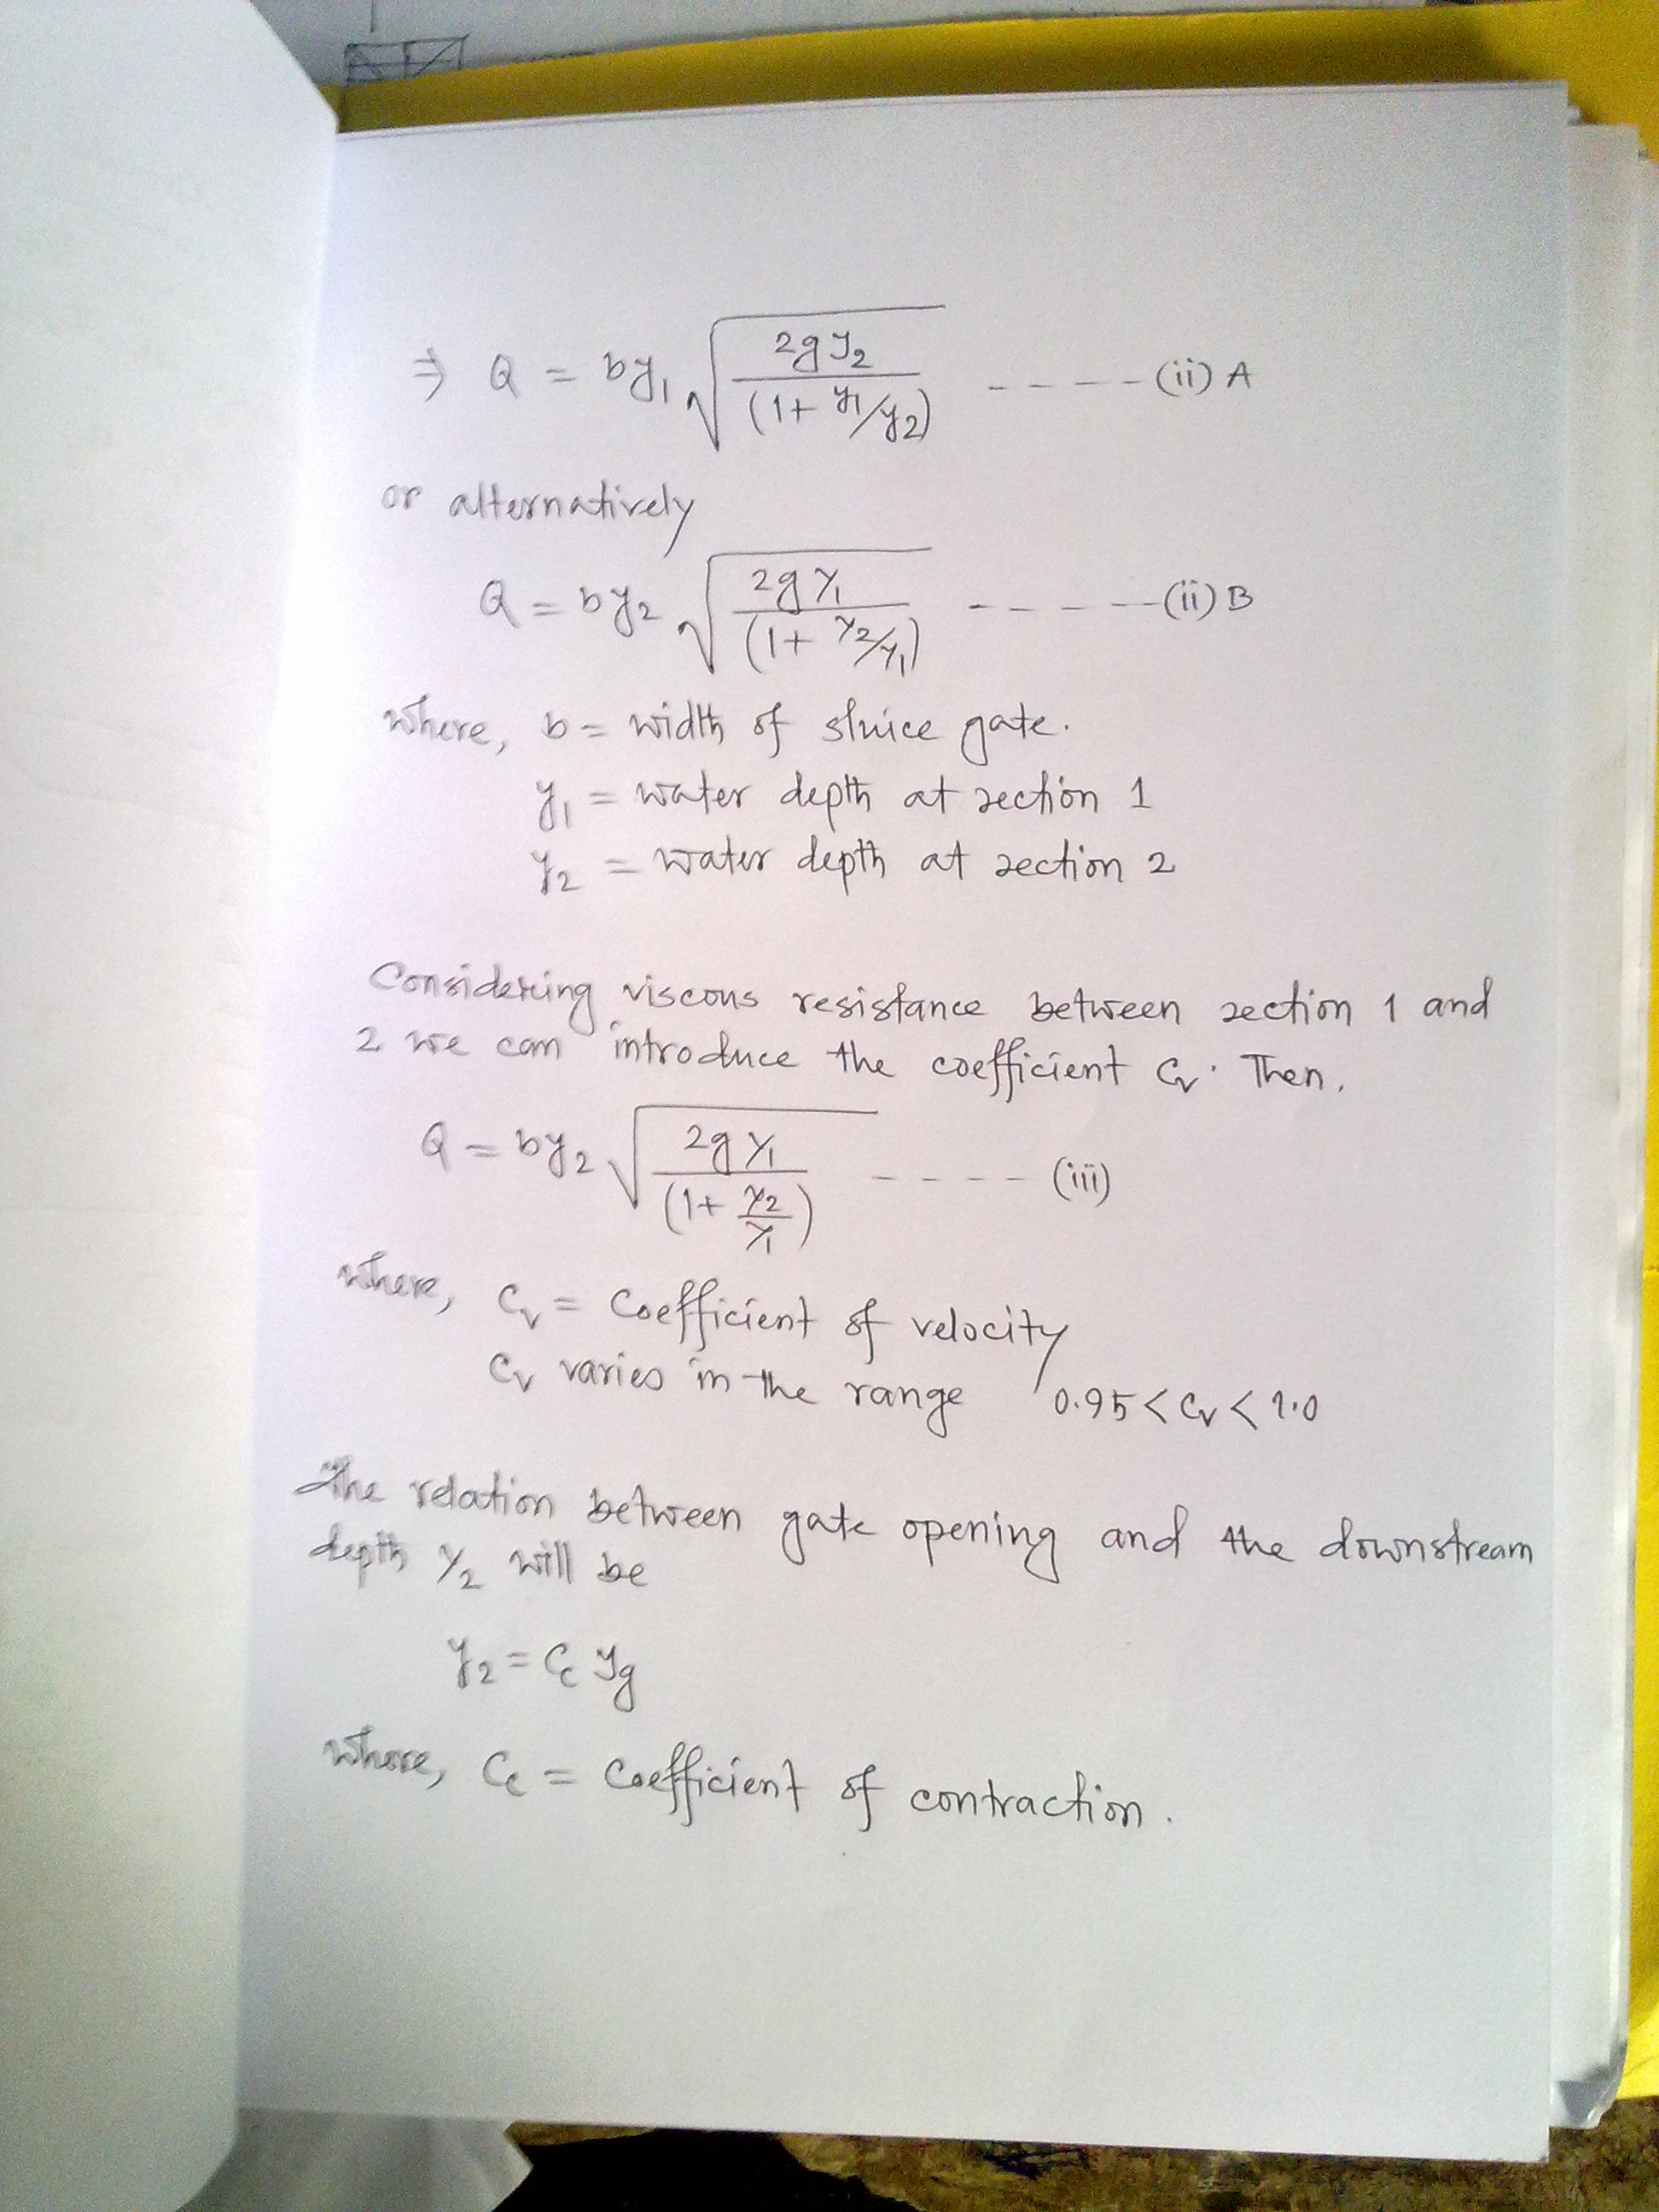 ⇒ Q = by₁ √(2gy₂ / (1 + y₁/y₂)) ---- (ii) A
or alternatively
Q = by₂ √(2gy₁ / (1 + y₂/y₁)) ----- (ii) B
where, b = width of sluice gate.
y₁ = water depth at section 1
y₂ = water depth at section 2
Considering viscous resistance between section 1 and
2 we can introduce the coefficient Cv. Then,
Q = by₂ √(2gy₁ / (1 + y₂/y₁)) ---- (iii)
where, Cv = Coefficient of velocity
Cv varies in the range 0.95 < Cv < 1.0
The relation between gate opening and the downstream
depth y₂ will be
y₂ = Cc yg
where, Cc = Coefficient of contraction.